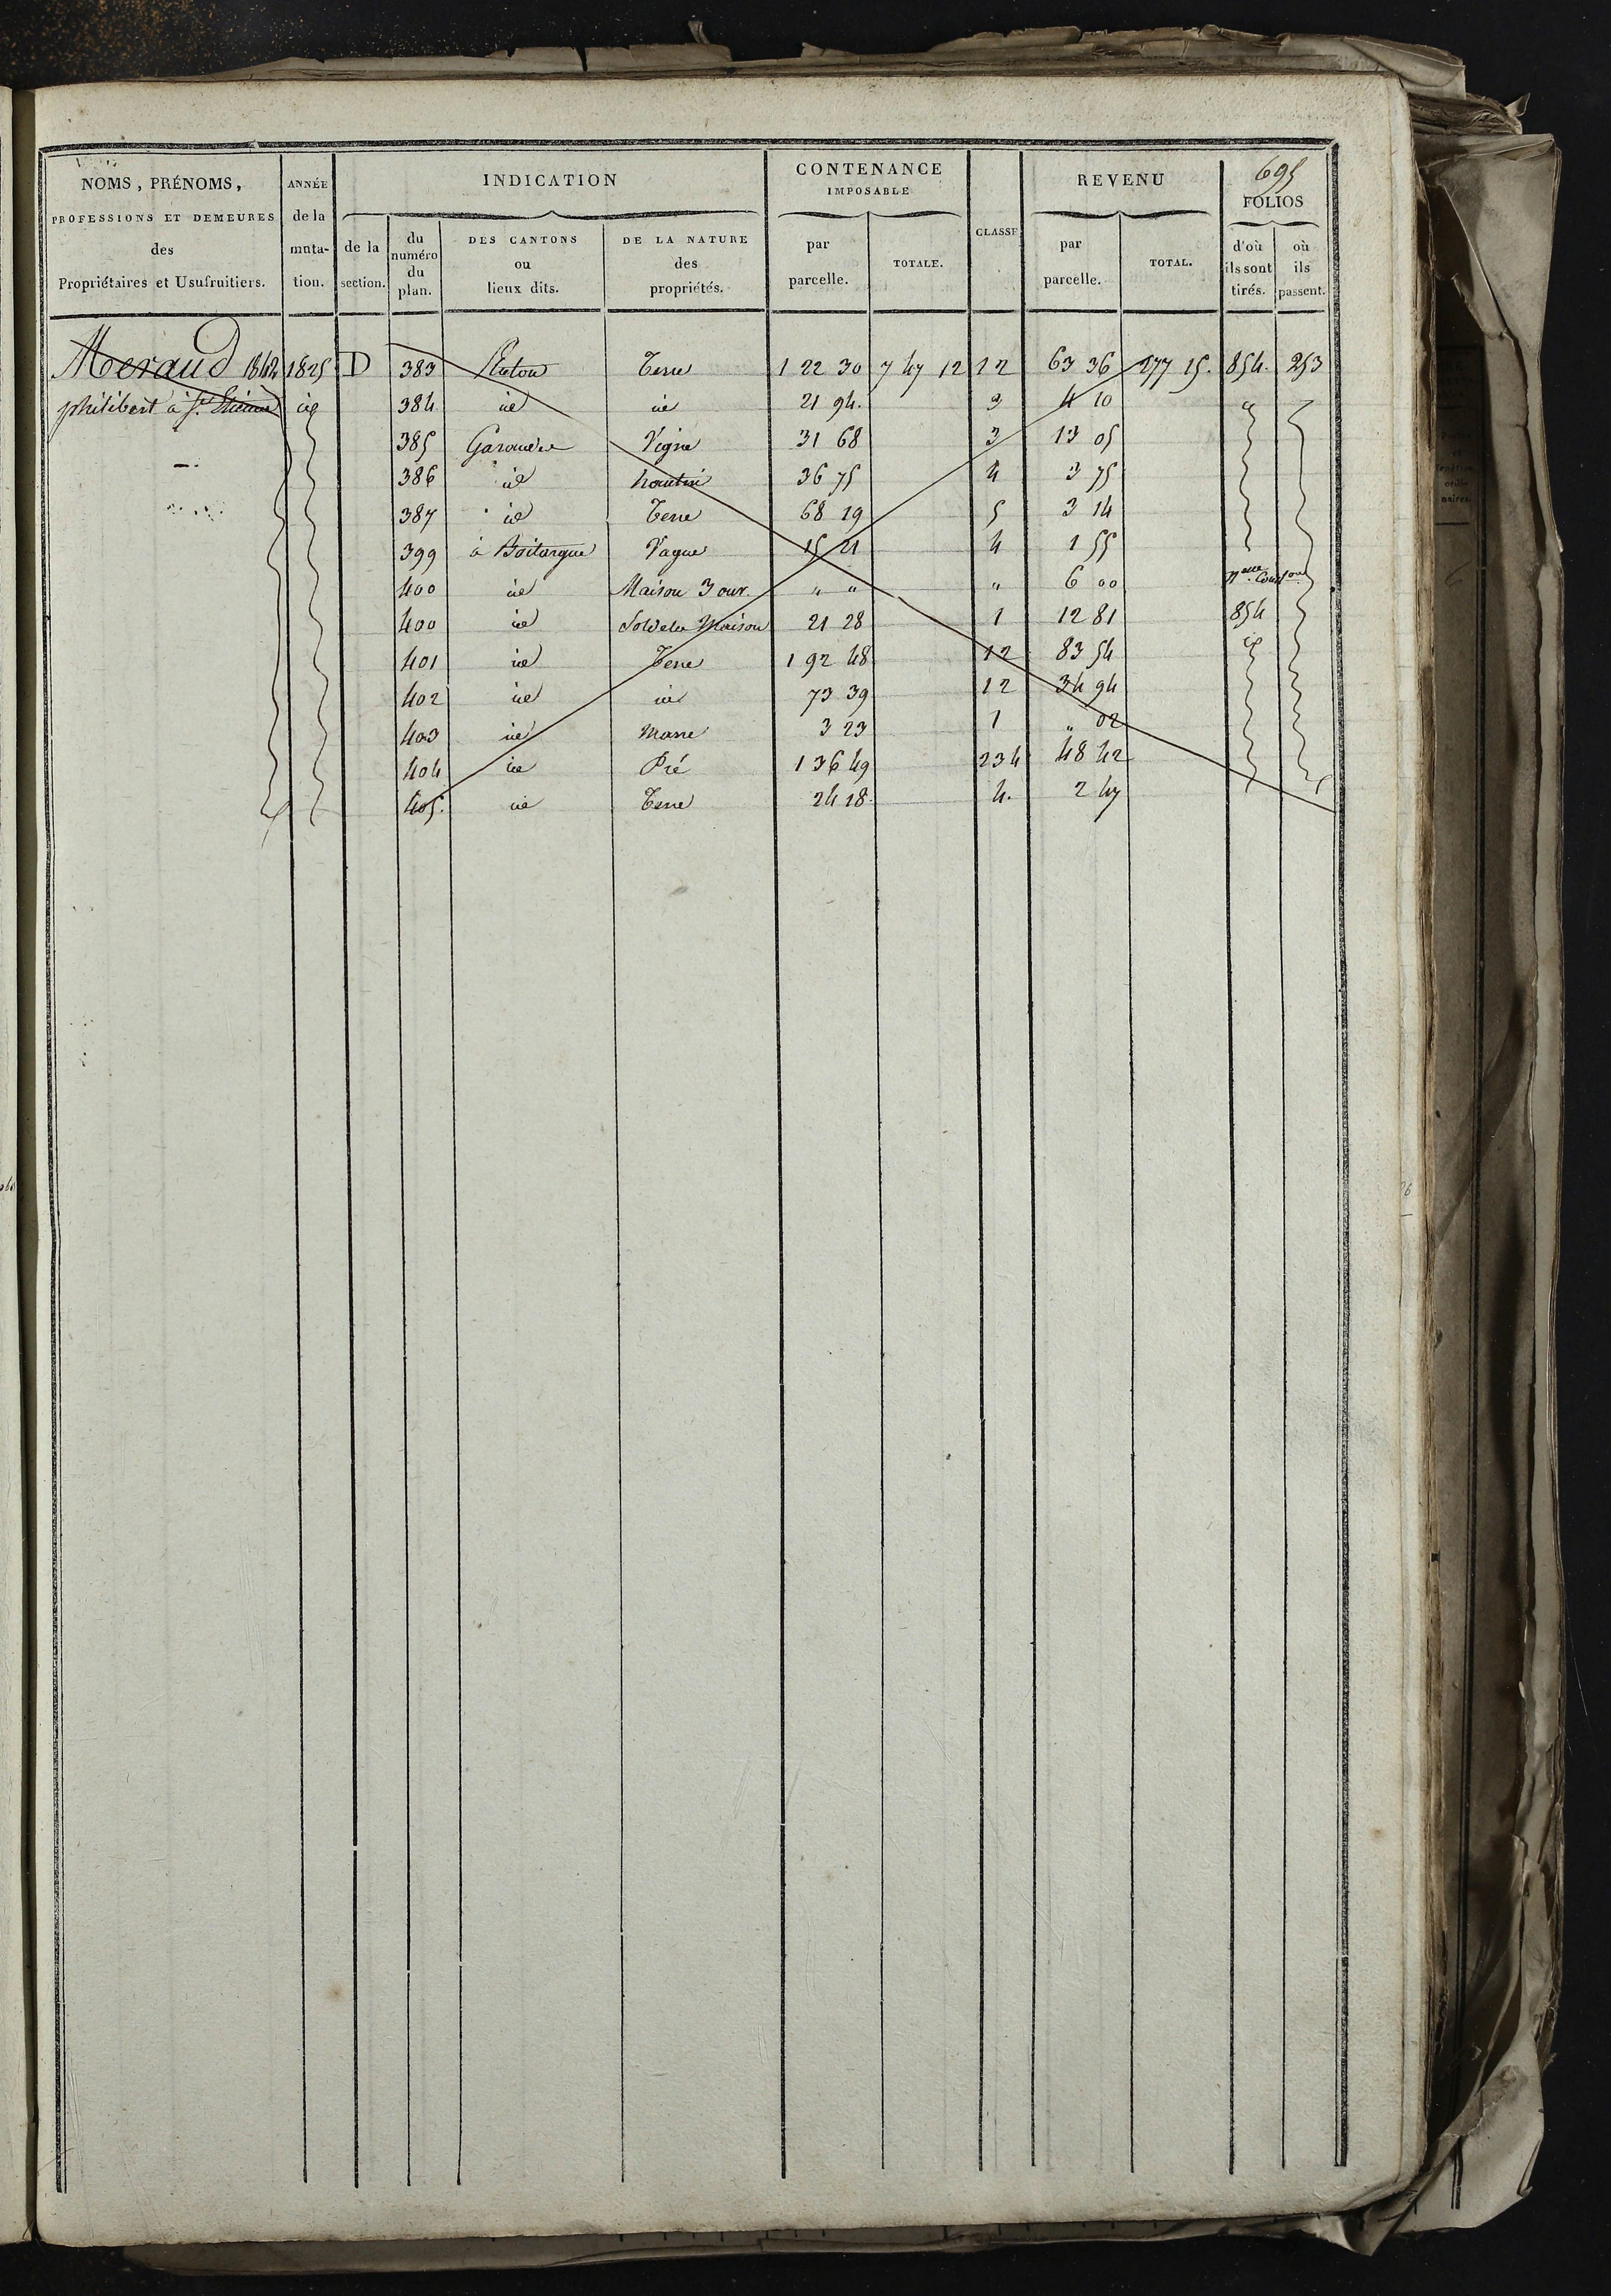 695
NOMS, PRÉNOMS, PROFESSIONS ET DEMEURES des Propriétaires et Usufruitiers.
ANNÉE de la muta- tion.
INDICATION
de la section.
du numéro du plan.
DES CANTONS ou lieux dits.
DE LA NATURE des propriétés.
CONTENANCE IMPOSABLE
par parcelle.
TOTALE.
CLASSE
REVENU
par parcelle.
TOTAL.
FOLIOS
d'où ils sont tirés.
où ils passent.
Meraud 1842 1825 D 383 Terre 1 22 30 7 47 12 12 63 36 277 15. 854. 253
philibert à St. Etienne id 384 id id 21 94. 3 4 10 id
385 Vigne 31 68 3 13 05
386 id hautin 36 75 4 3 75
387 id Terre 68 19 5 3 14
399 à Boitargue Vague 15 21 4 1 55
400 id Maison 3 ouv. " " " 6 00 nelle Conson
400 id Sol de la Maison 21 28 1 12 81 854
401 id Terre 1 92 48 12 83 54 id
402 id id 73 39 12 34 94
403 id Mare 3 23 1 " 02
404 id Pré 1 36 49 234 48 42
405. id Terre 24 18. 4. 2 47